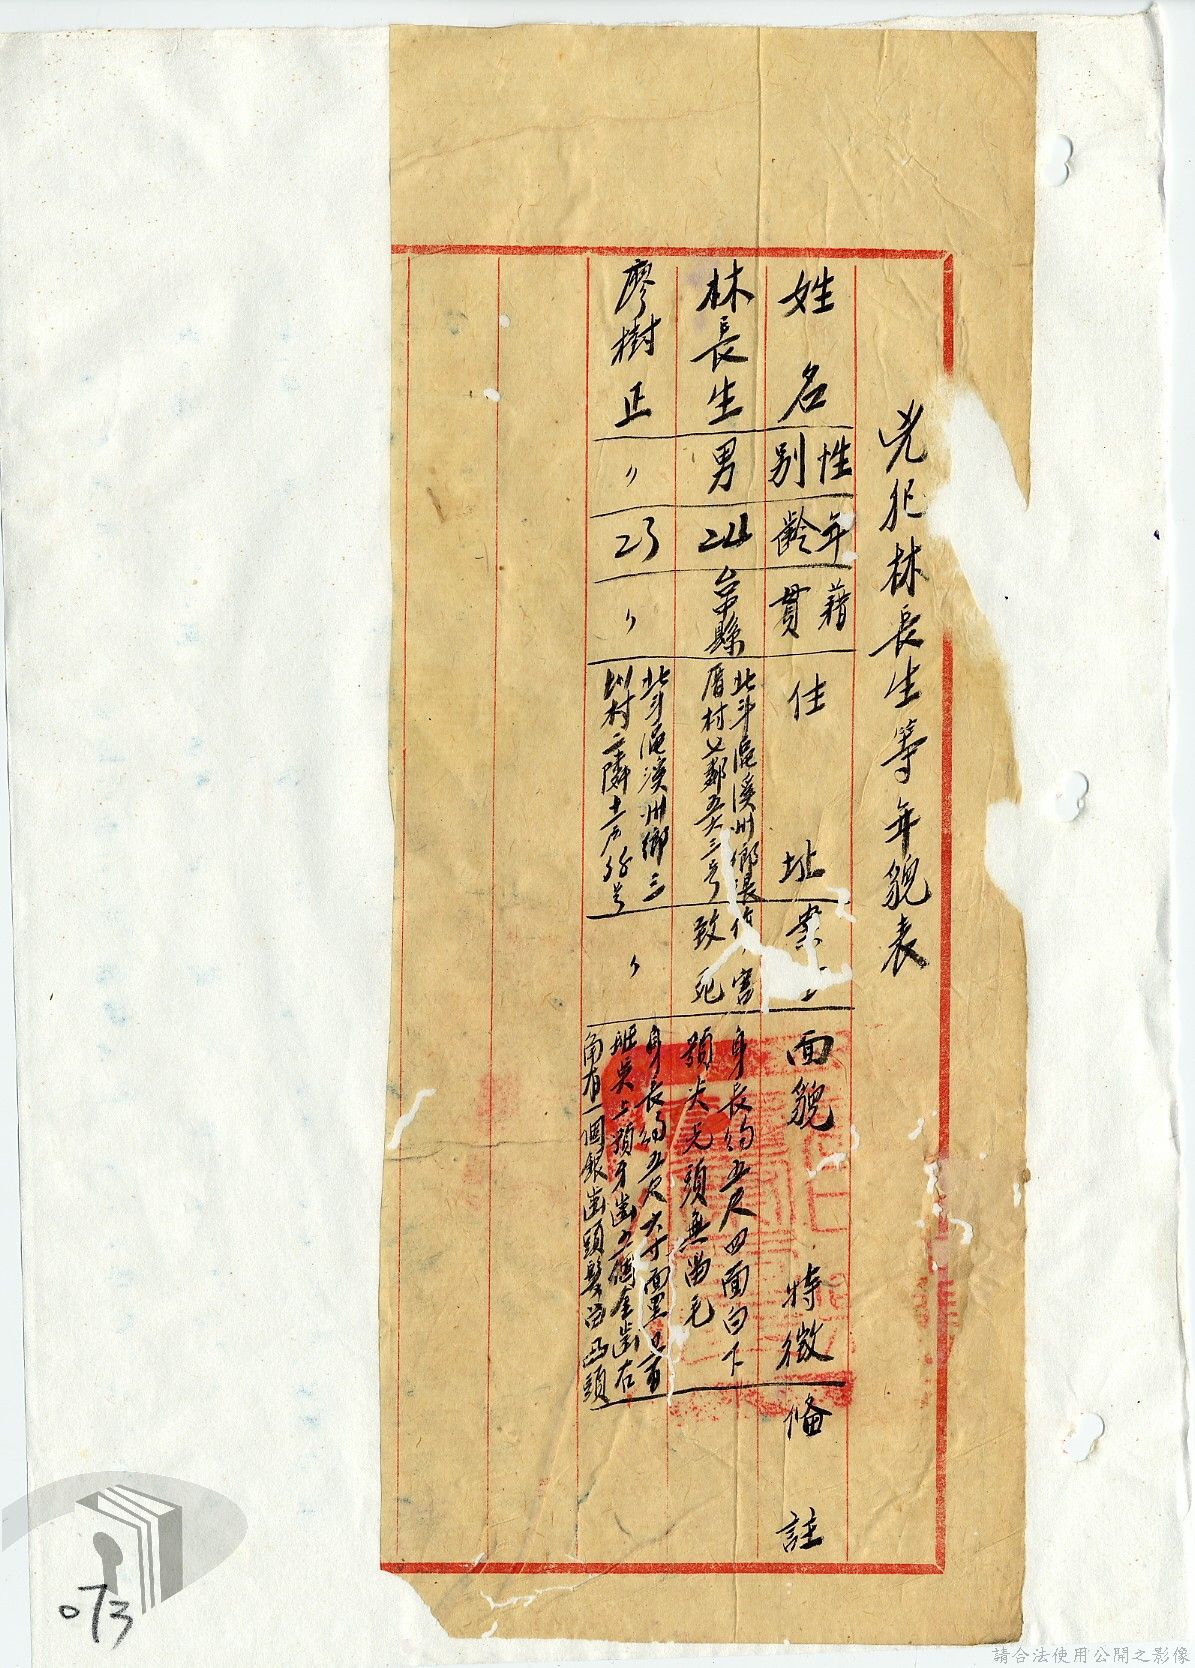 兇犯林長生等年貌表
姓名
性別
年齡
籍貫
住址
案
面貌
特徵
備註
林長生
男
24
台中縣
北斗區溪州鄉張
厝村七鄰五六三号
傷害
致死
身長約五尺四面白下
頭尖光頭無留毛
廖樹正
〃
23
〃
北斗區溪州鄉三
圳村二隣十一戶38号
〃
身長約五尺六寸面黑且有
班吳上頭牙齒五個金齒右
角有一個銀齒頭髮留西頭
073
請合法使用公開之影像